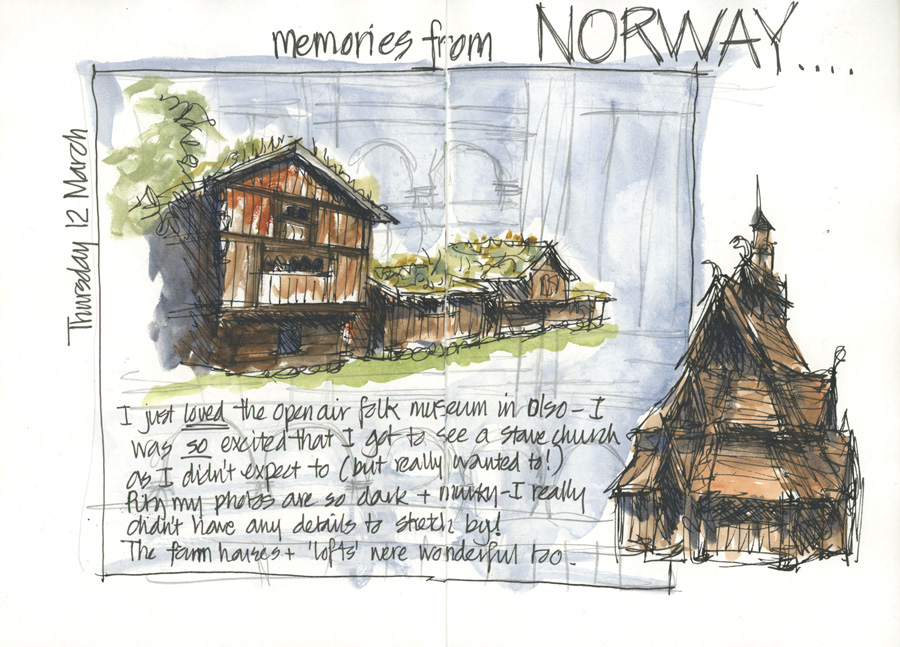 memories from NORWAY....
Thursday 12 March
I just loved the open air folk museum in Olso - I
was so excited that I got to see a stave church
as I didn't expect to (but really wanted to!)
Pity my photos are so dark + murky - I really
didn't have any details to sketch by!
The farm houses + 'lofts' were wonderful too.